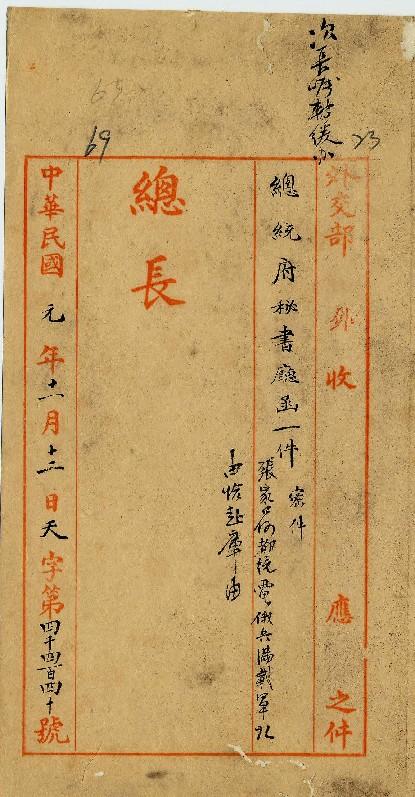 次長囑暫緩办
23
外交部 外收 應 之件
總統府秘書廳函一件 密件
張家口何都統電俄兵滿載軍火
由恰赴庫由
總長
69
65
中華民國元年十一月十二日天字第四千四百四十號